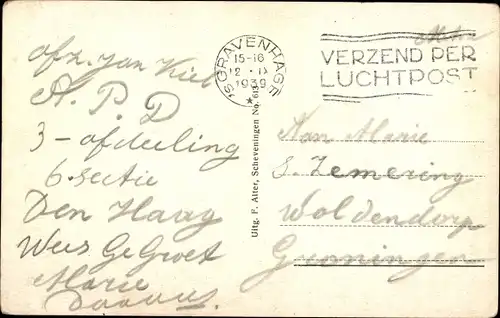 afz. Jan
A. P. D
3 - afdeeling
6. sectie
Den Haag
Wees Gegroet
Marie
'S GRAVENHAGE
15-16
12
1939
*
VERZEND PER
LUCHTPOST
Uitg. P. Alter, Scheveningen No.
Aan Marie
S. Zemering
Woldendorp
Groningen